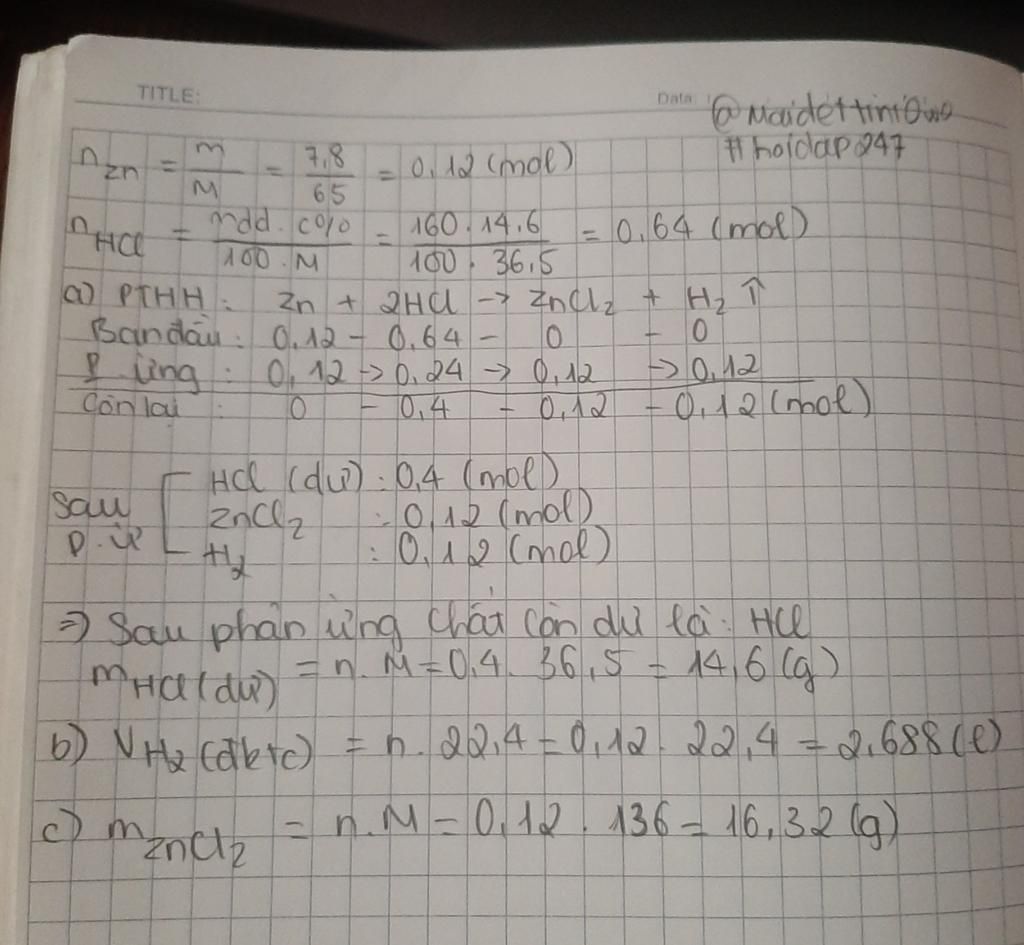 TITLE:
Data
@Maidettini0w0
#hoidap247
n Zn = m/M = 7,8/65 = 0,12 (mol)
n HCl = mdd. C%/100.M = 160.14,6/100.36,5 = 0,64 (mol)
a) PTHH: Zn + 2HCl → ZnCl₂ + H₂ ↑
Ban đầu: 0,12 – 0,64 – 0 – 0
P. ứng: 0,12 → 0,24 → 0,12 → 0,12
Còn lại: 0 – 0,4 – 0,12 – 0,12 (mol)
Sau p.ứ
HCl (dư): 0,4 (mol)
ZnCl₂ : 0,12 (mol)
H₂ : 0,12 (mol)
⇒ Sau phản ứng chất còn dư là: HCl
m HCl (dư) = n.M = 0,4. 36,5 = 14,6 (g)
b) V H₂ (đktc) = n. 22,4 = 0,12. 22,4 = 2,688 (l)
c) m ZnCl₂ = n.M = 0,12. 136 = 16,32 (g)